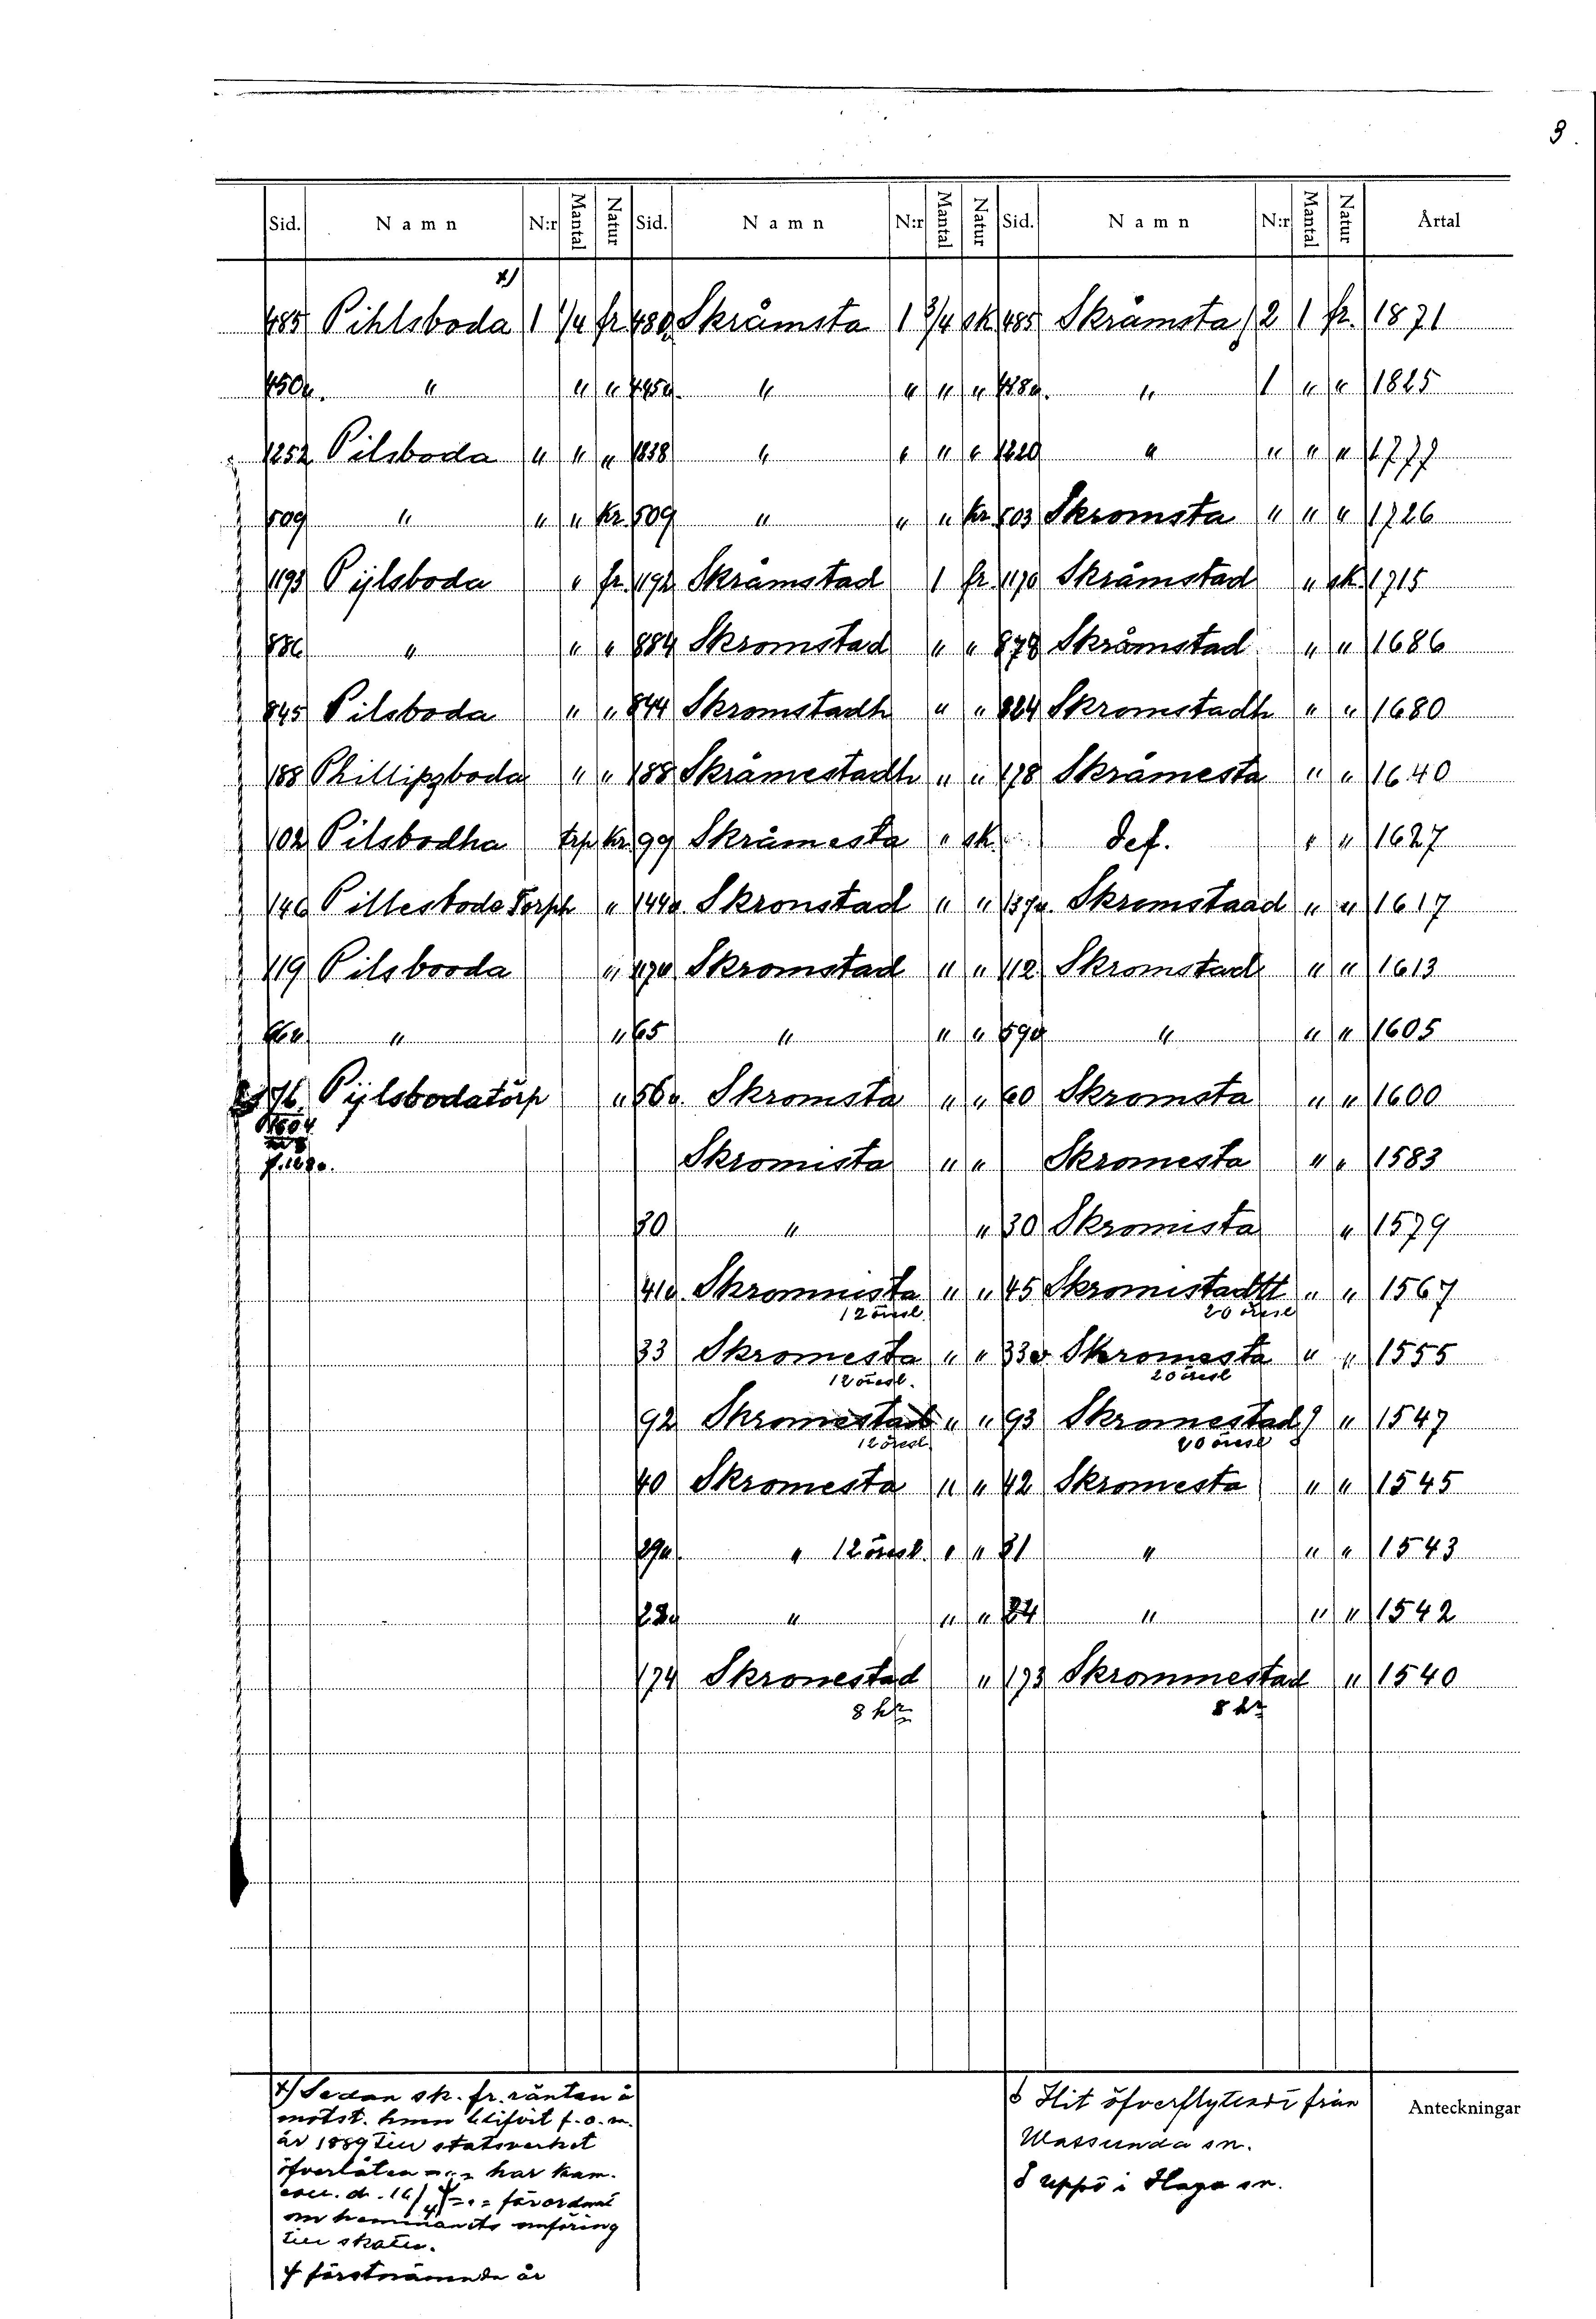 3.
Sid. Namn N:r Mantal Natur Sid. Namn N:r Mantal Natur Sid. Namn N:r Mantal Natur Årtal
x)
485 Pihlsboda 1 1/4 fr. 480 Skråmsta 1 3/4 sk. 485 Skråmsta 2 1 fr. 1871
" " " " " " " 1 " " 1825
1252 Pilsboda " " " 1238 " " " " 1220 " " " " 1777
509 " " " kr. 509 " " " kr. 503 Skromsta " " " 1726
1193 Pijlsboda " fr. 1192 Skråmstad 1 fr. 1170 Skråmstad " sk. 1715
886 " " " 884 Skromstad " " 878 Skråmstad " " 1686
845 Pilsboda " " 844 Skromstadh " " 824 Skromstadh " " 1680
188 Phillipzboda " " 188 Skråmestadh " " 178 Skråmesta " " 1640
102 Pilsbodha trp kr. 99 Skråmesta " sk. def. " " 1627
146 Pillesboda Torph " 144v. Skronstad " " 137v. Skromstaad " " 1617
119 Pilsbooda " Skromstad " " 112 Skromstad " " 1613
" " 65 " " " 59v " " " 1605
76 Pijlsbodatorp " 56v. Skromsta " " 60 Skromsta " " 1600
Skromista " " Skromesta " " 1583
30 " " 30 Skromista " 1579
41v. Skromnista " " 45 Skromistadtt " " 1567
12 öresl. 20 öresl
33 Skromesta " " 33v Skromesta " " 1555
12 öresl. 20 öresl
92 Skromestad " " 93 Skromestad " 1547
12 öresl. 20 öresl
40 Skromesta " " 42 Skromesta " " 1545
29v. " 12 öresl. " " 31 " " " 1543
" " " 24 " " " 1542
174 Skronestad " 173 Skrommestad " 1540
8 8
x) Sedan sk. fr. räntan å
motst. hmn blifvit f. o. m.
år 1889 till statsverket
öfverlåten har kam.
coll. d. 16/4 förordnat
om hemmanets omföring
till skatte.
förstnämnda år
Hit öfverflyttadt från
Wassunda sn.
uppt i Haga sn.
Anteckningar